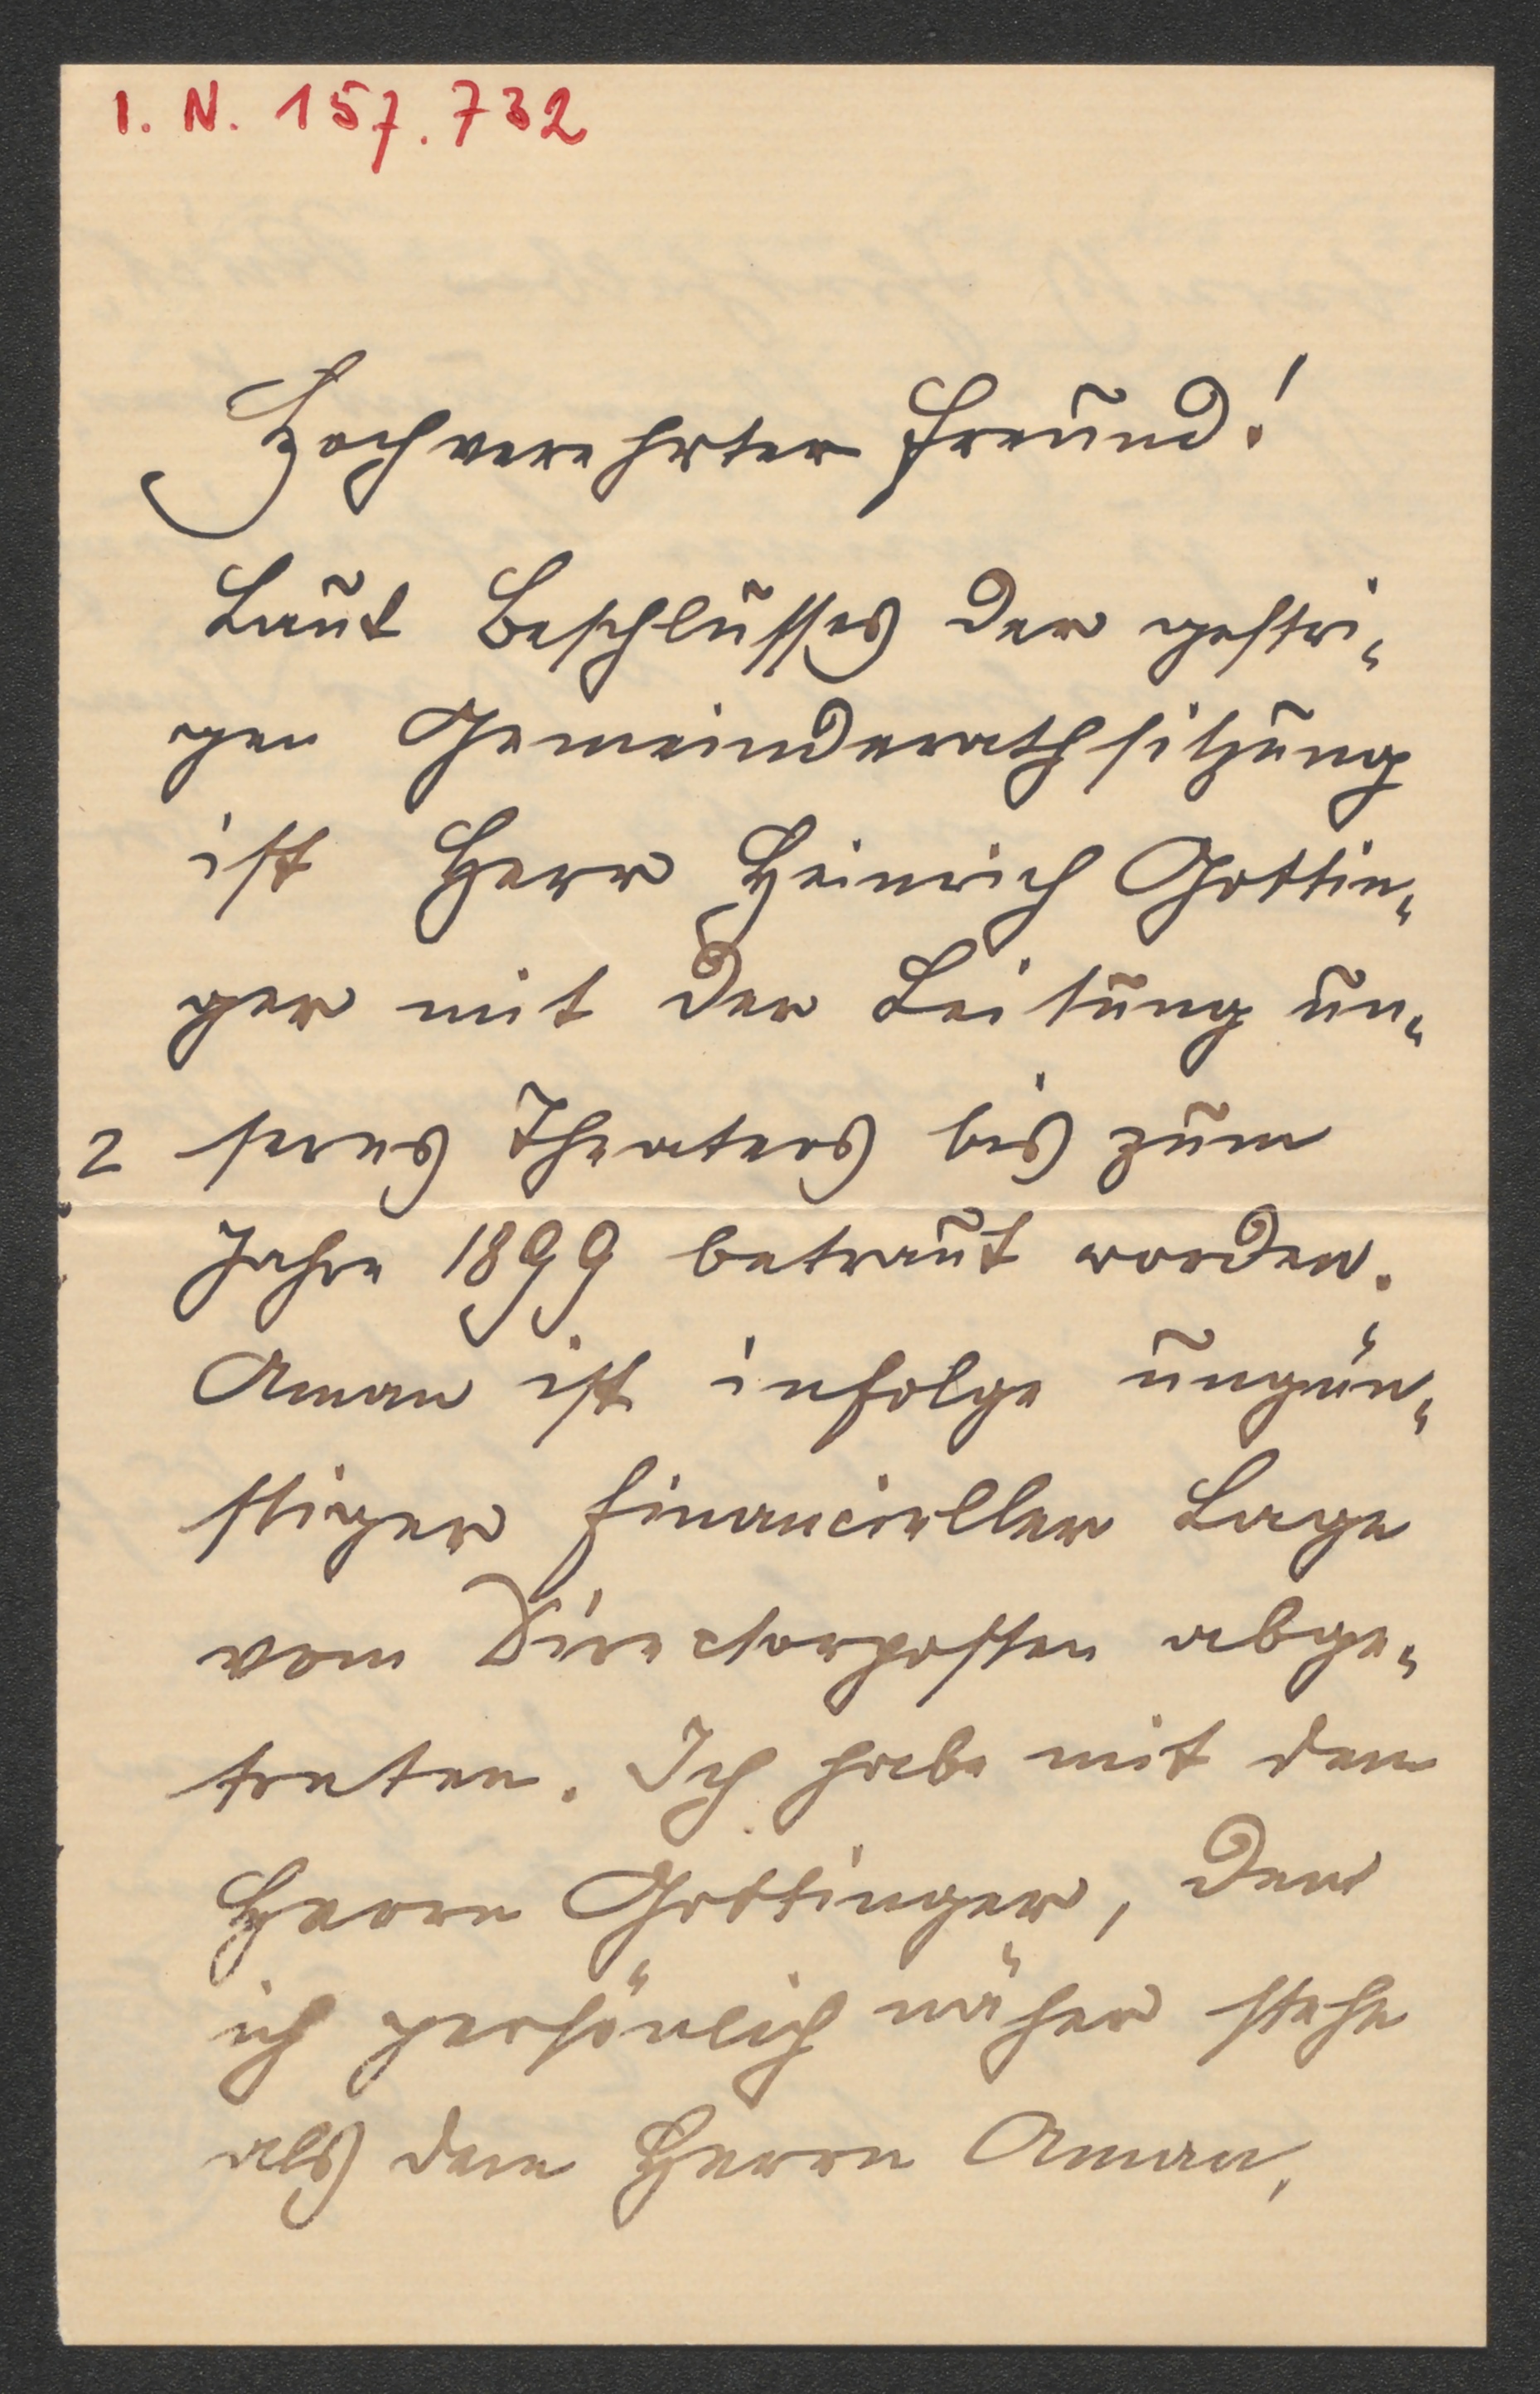 I. N. 157.732
Hochverehrter Freund!
Laut Beschlusses der gestri-
gen Gemeinderathsitzung
ist Herr Heinrich Gottin-
ger mit der Leitung un-
2 seres Theaters bis zum
Jahre 1899 betraut worden.
Aman ist infolge ungün-
stiger financieller Lage
vom Directorposten abge-
treten. Ich habe mit dem
Herrn Gottinger, dem
ich persönlich näher stehe
als dem Herrn Aman,